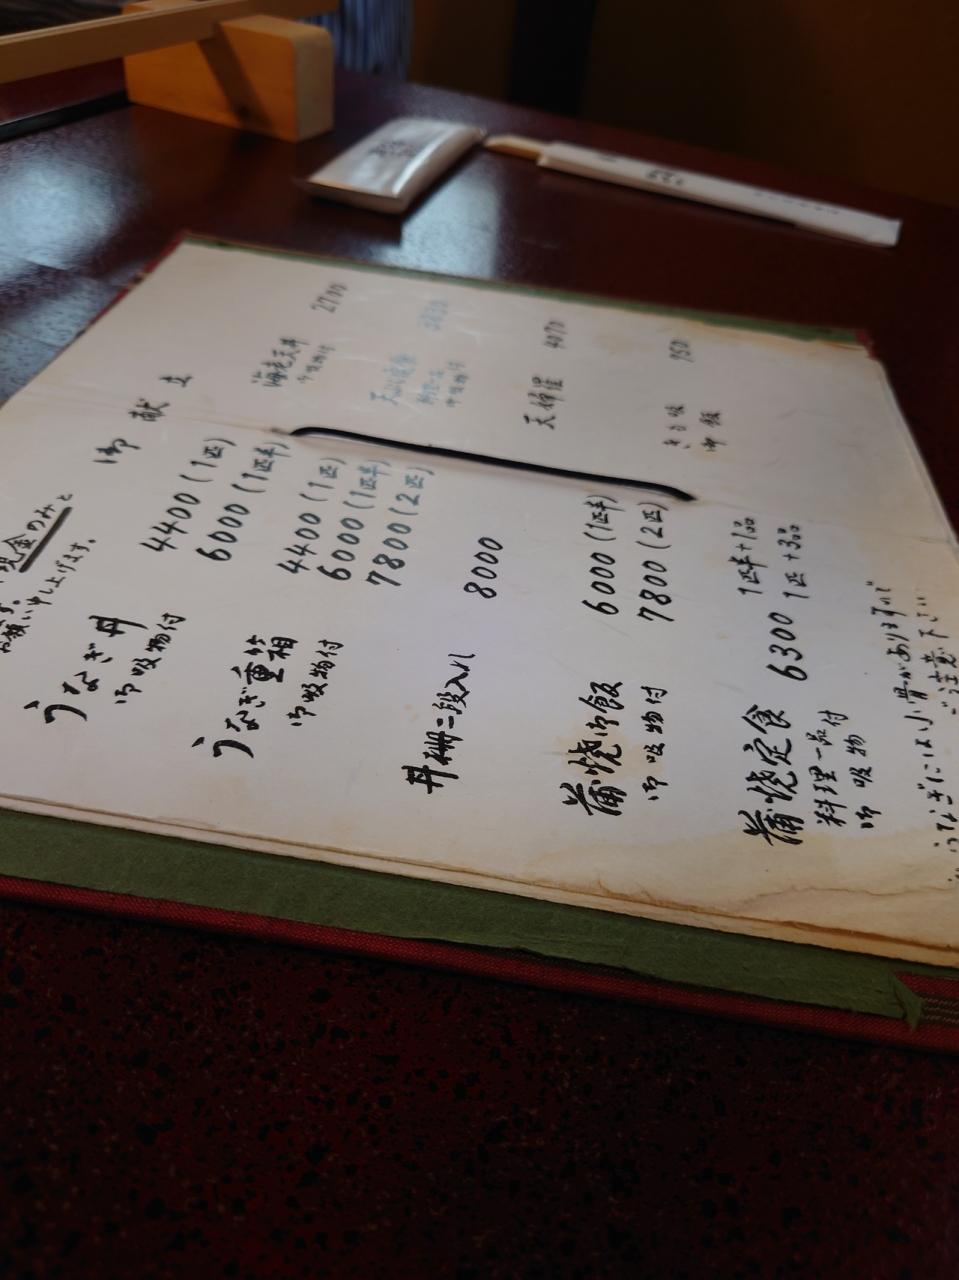 現金のみと
お願い申し上げます。
御献立
うなぎ丼
御吸物付
4400(1匹)
6000(1匹半)
うなぎ重箱
御吸物付
4400(1匹)
6000(1匹半)
7800(2匹)
丼柵二段入れ
8000
蒲焼御飯
御吸物付
6000(1匹半)
7800(2匹)
蒲焼定食
料理一品付
御吸物
6300
1匹半+1品
1匹+3品
うなぎには小骨がありますので
ご注意下さい
海老天丼
御吸物付
2700
御吸物付
天婦羅
きも吸
御飯